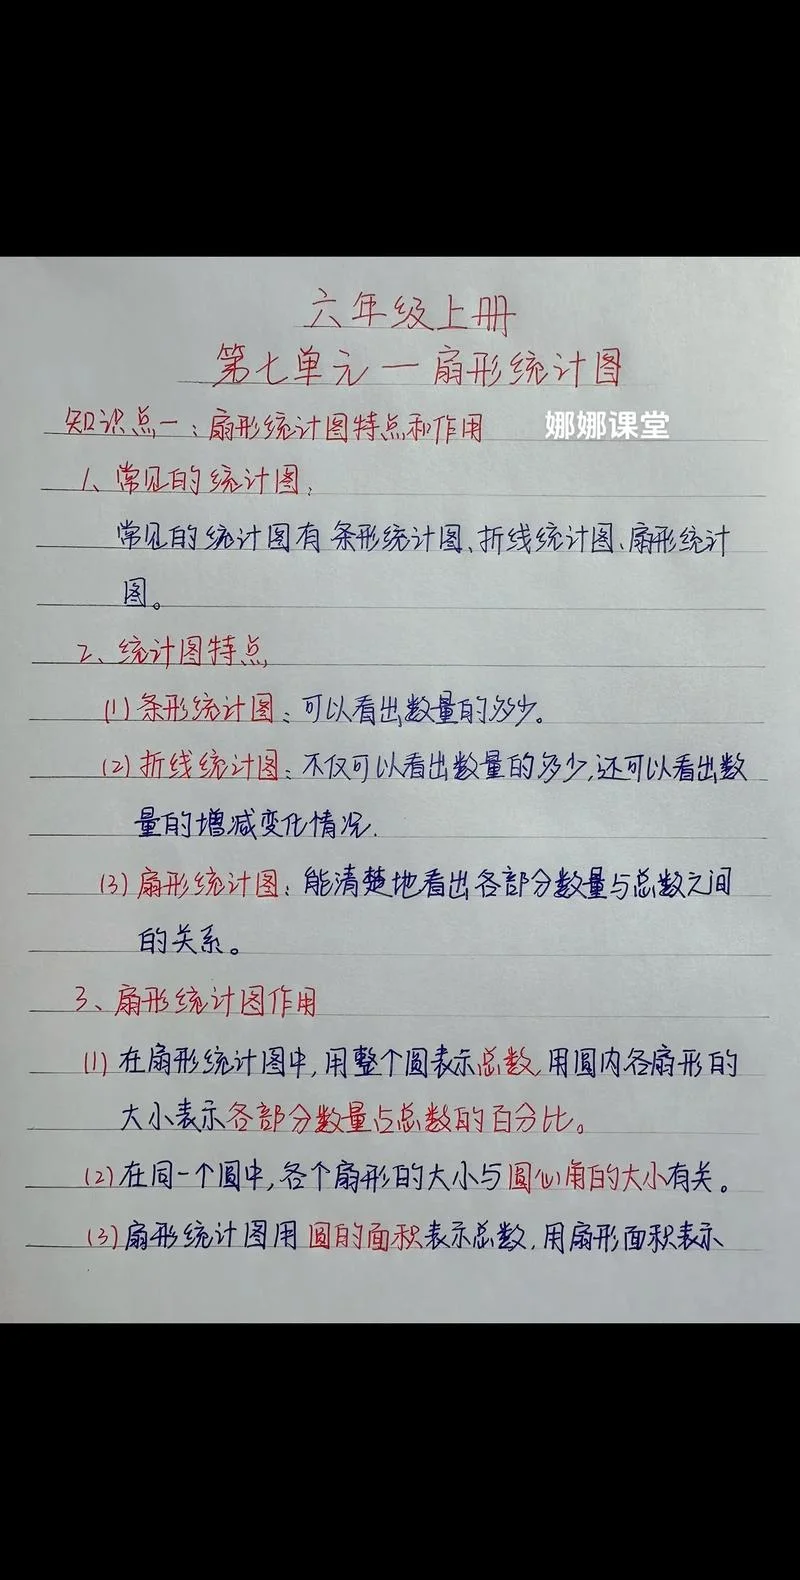 六年级上册
第七单元一扇形统计图
知识点一:扇形统计图特点和作用
娜娜课堂
1、常见的统计图:
常见的统计图有条形统计图、折线统计图、扇形统计
图。
2、统计图特点
(1)条形统计图:可以看出数量的多少。
(2)折线统计图:不仅可以看出数量的多少,还可以看出数
量的增减变化情况.
(3)扇形统计图:能清楚地看出各部分数量与总数之间
的关系。
3、扇形统计图作用
(1)在扇形统计图中,用整个圆表示总数,用圆内各扇形的
大小表示各部分数量占总数的百分比。
(2)在同一个圆中,各个扇形的大小与圆心角的大小有关。
(3)扇形统计图用圆的面积表示总数,用扇形面积表示